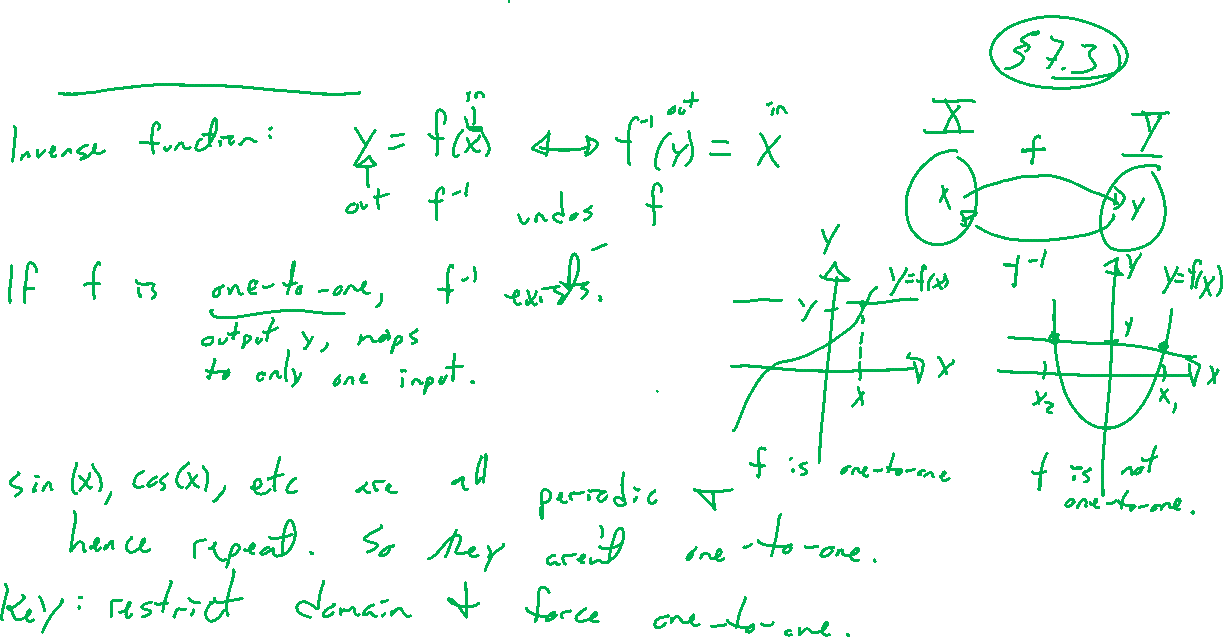 § 7.3
Inverse function: y = f(x) ⟷ f⁻¹(y) = x
in
out
out
in
f⁻¹ undos f
X
Y
f
x
y
f⁻¹
If f is one-to-one, f⁻¹ exists.
output y, maps
to only one input.
y
y=f(x)
y
x
x
f is one-to-one
y
y=f(x)
y
x₂
x₁
x
f is not
one-to-one.
sin(x), cos(x), etc are all periodic +
hence repeat. So they aren't one-to-one.
Key: restrict domain + force one-to-one.